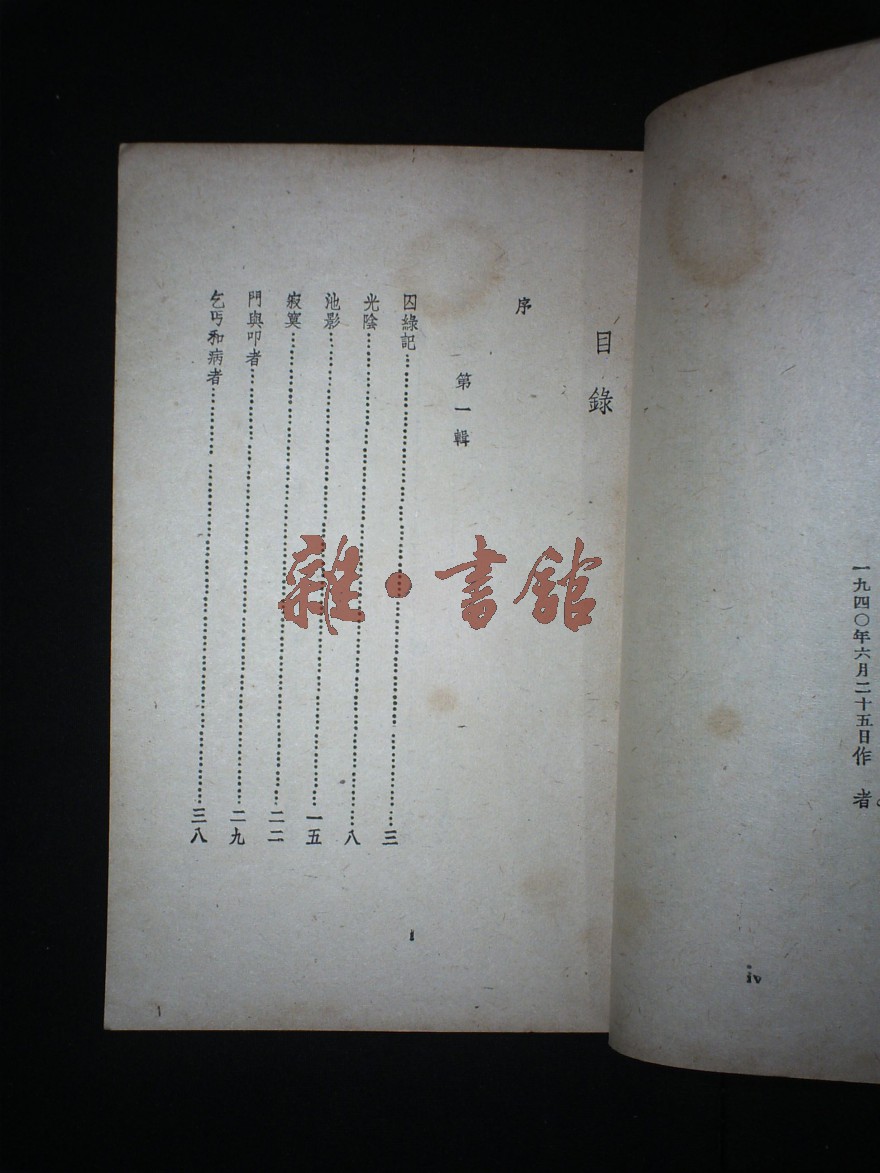 一九四〇年六月二十五日作者
iv
目錄
序
第一輯
囚綠記……三
光陰……八
池影……一五
寂寞……二二
門與叩者……二九
乞丐和病者……三八
1
雜·書館